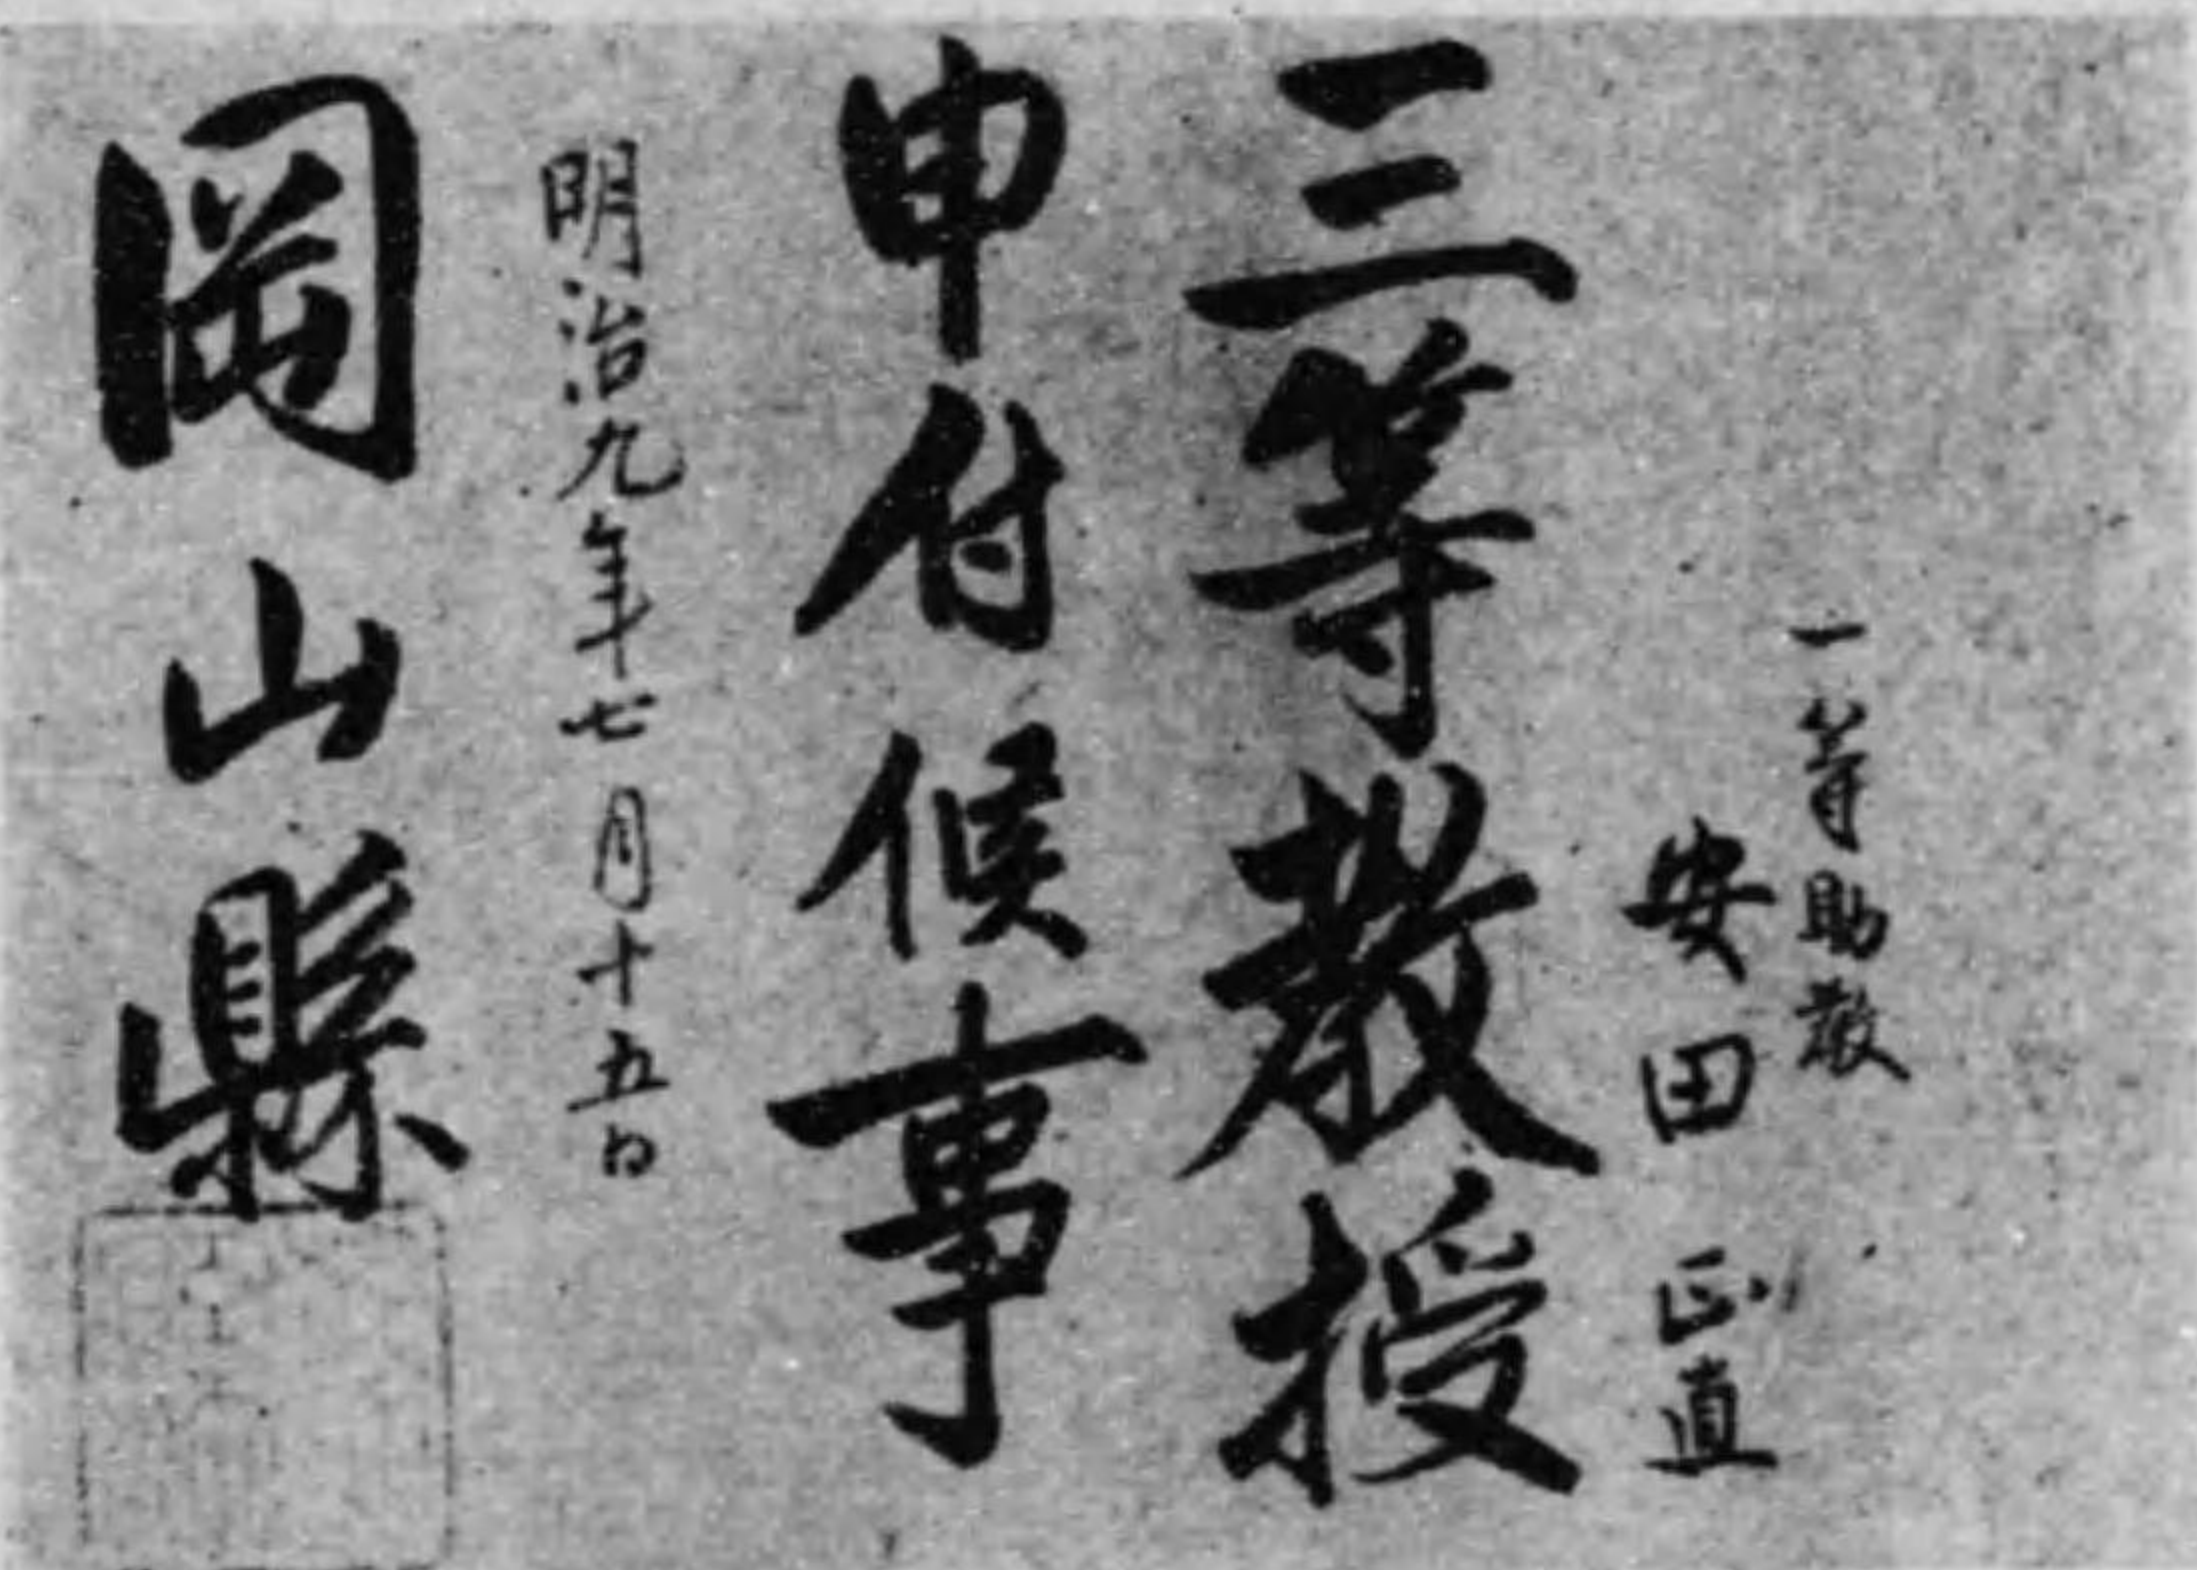 一等助教
安田正直
三等教授
申付候事
明治九年七月十五日
岡山縣